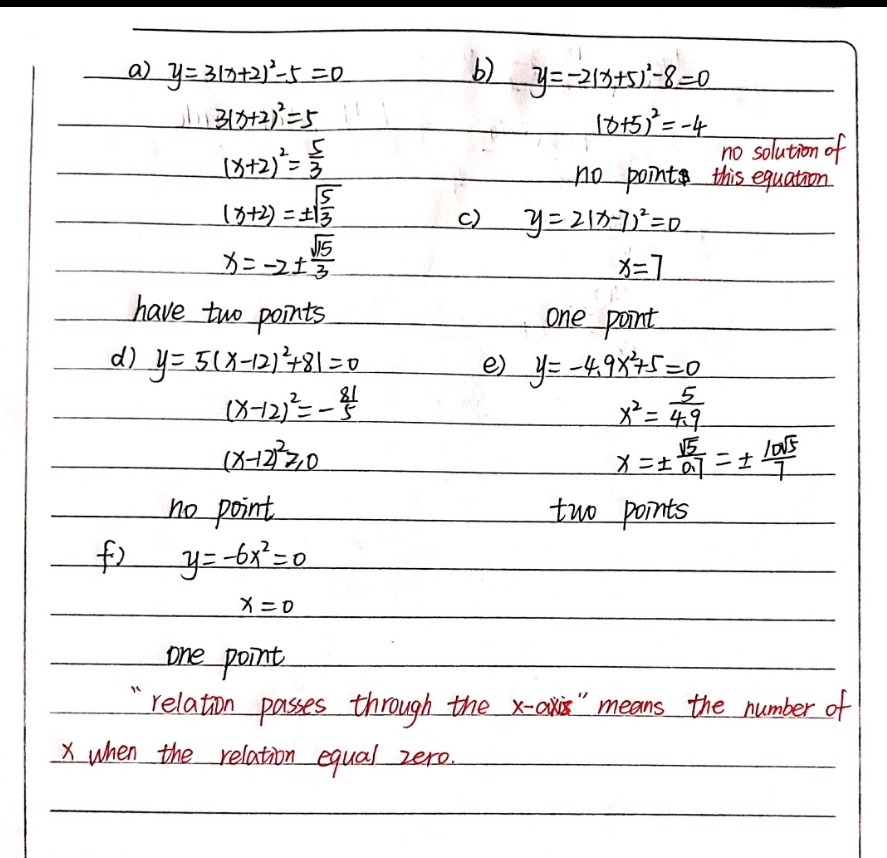 a) y=3(x+2)²-5=0
3(x+2)²=5
(x+2)²=5/3
(x+2)=±√(5/3)
x=-2±√15/3
have two points
b) y=-2(x+5)²-8=0
(x+5)²=-4
no solution of
no points this equation
c) y=2(x-7)²=0
x=7
one point
d) y=5(x-12)²+81=0
(x-12)²=-81/5
(x-12)²≥0
no point
e) y=-4.9x²+5=0
x²=5/4.9
x=±√5/0.7=±10√5/7
two points
f) y=-6x²=0
x=0
one point
"relation passes through the x-axis" means the number of
x when the relation equal zero.